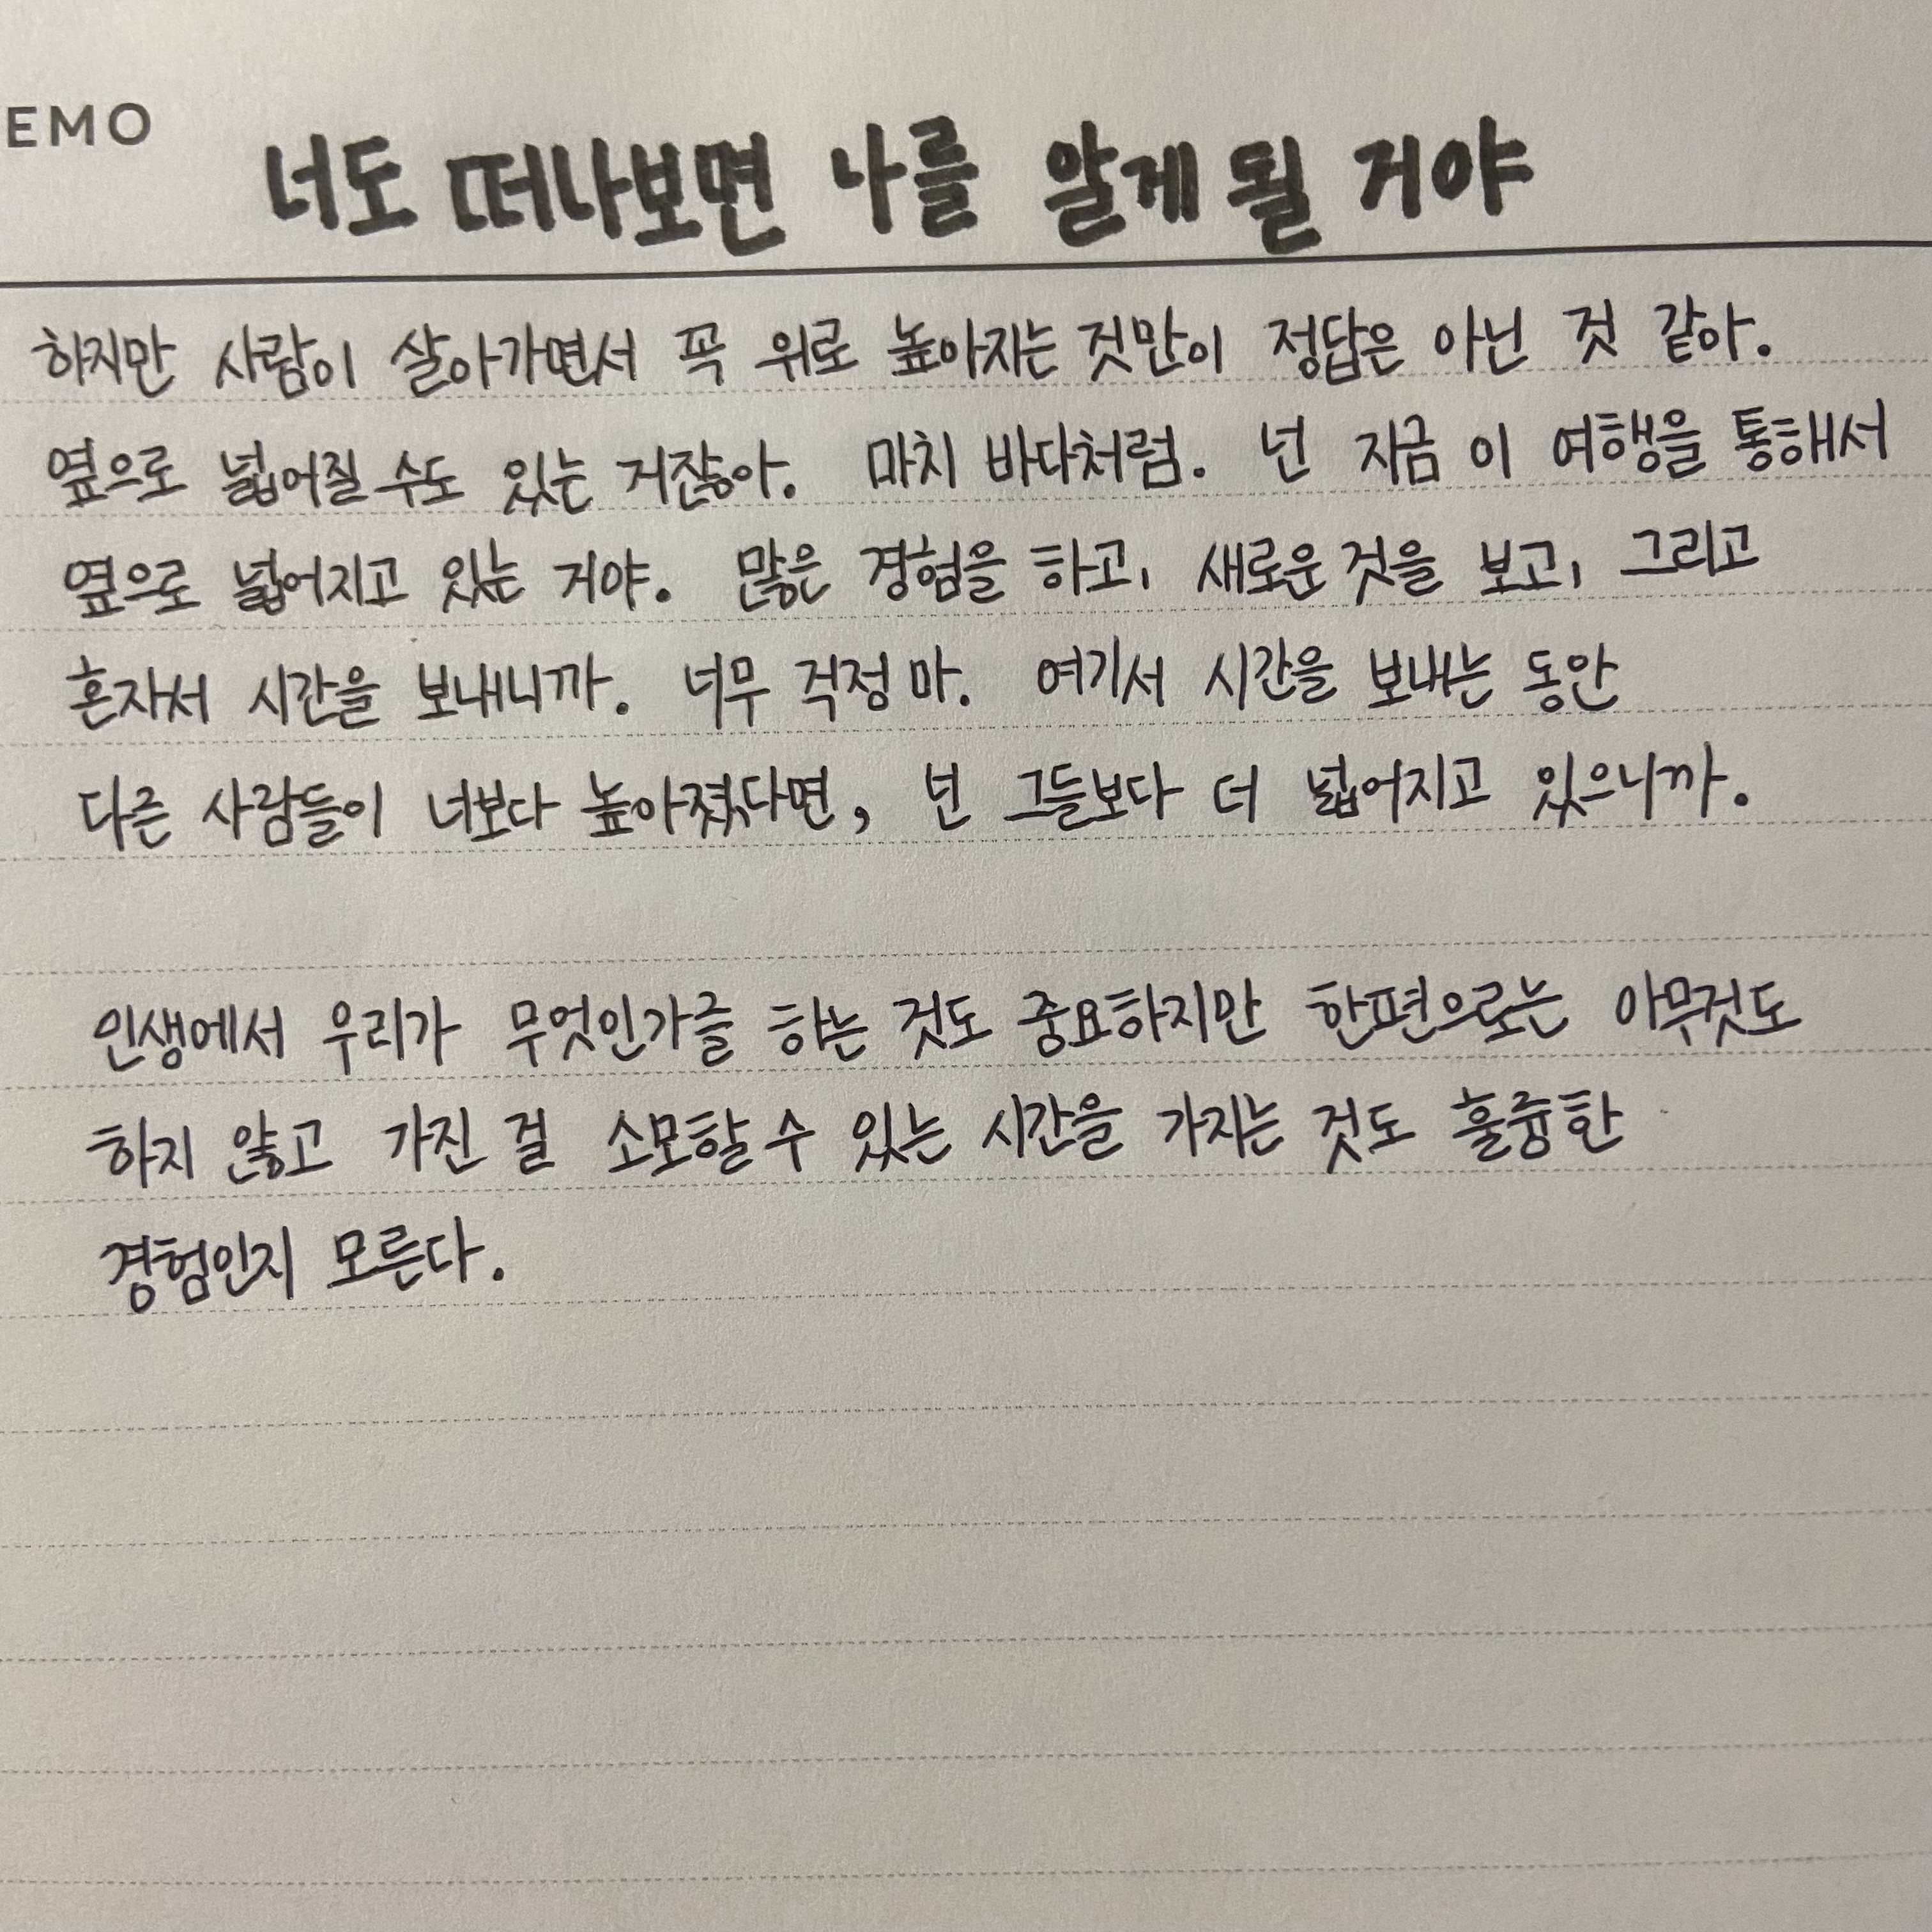 EMO
너도 떠나보면 나를 알게 될 거야
하지만 사람이 살아가면서 꼭 위로 높아지는 것만이 정답은 아닌 것 같아.
옆으로 넓어질 수도 있는 거잖아. 마치 바다처럼. 넌 지금 이 여행을 통해서
옆으로 넓어지고 있는 거야. 많은 경험을 하고, 새로운 것을 보고, 그리고
혼자서 시간을 보내니까. 너무 걱정 마. 여기서 시간을 보내는 동안
다른 사람들이 너보다 높아졌다면, 넌 그들보다 더 넓어지고 있으니까.
인생에서 우리가 무엇인가를 하는 것도 중요하지만 한편으로는 아무것도
하지 않고 가진 걸 소모할 수 있는 시간을 가지는 것도 훌륭한
경험인지 모른다.